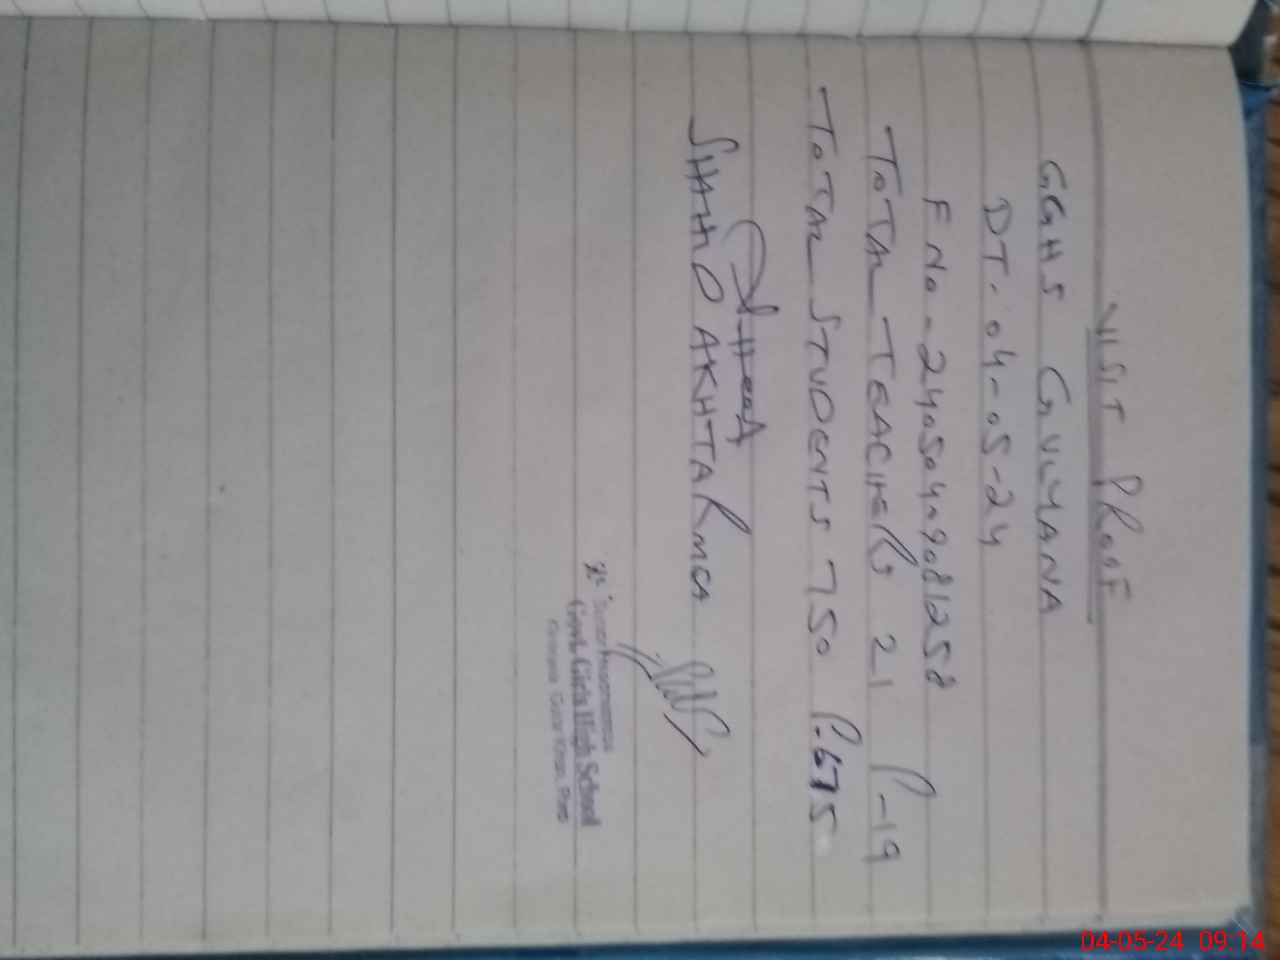 VISIT PROOF
GGHS GULYANA
DT. 04-05-24
F No - 24050409081258
TOTAL TEACHERS 21 P-19
TOTAL STUDENTS 750 P.675
SHAHID AKHTAR MEA
Senior Headmistress
Govt. Girls High School
04-05-24 09:14